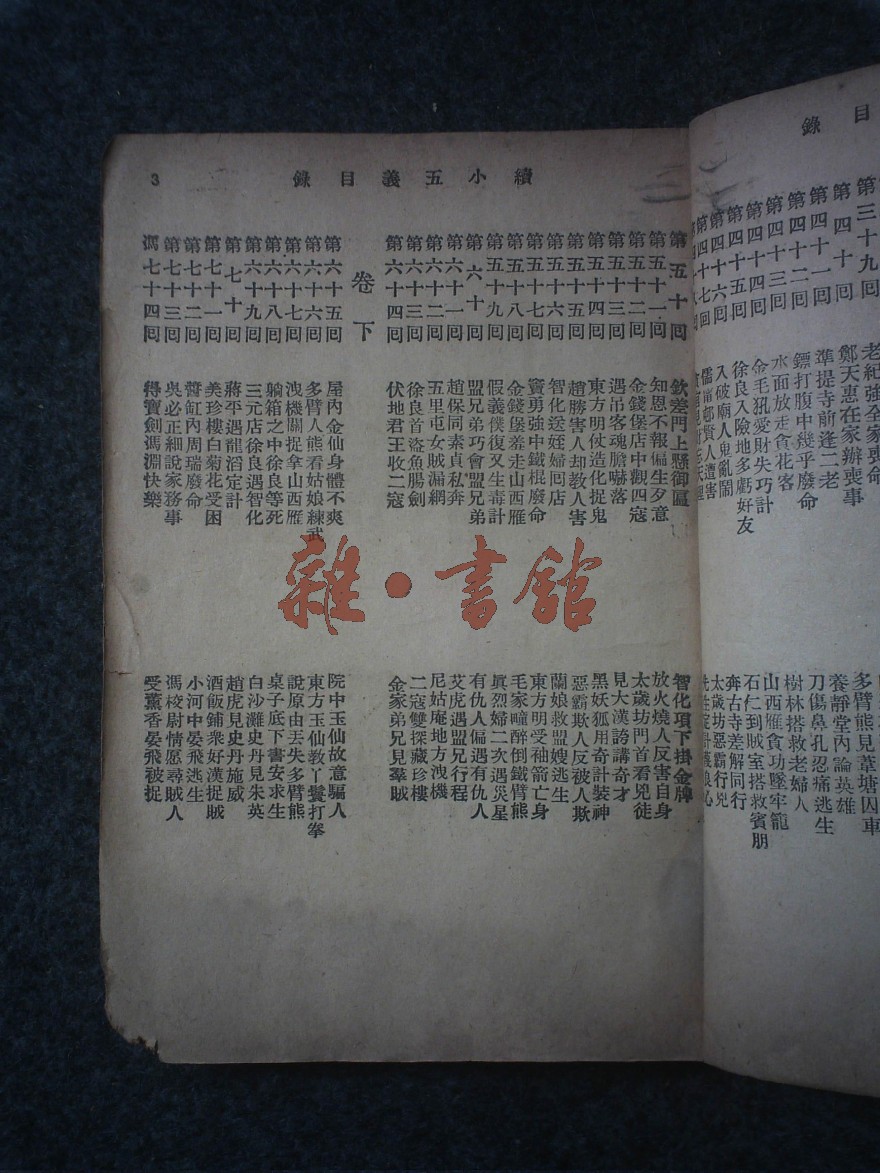 目錄
第三十九回 老紀強全家
第四十回 鄭天惠在家辦喪事 多臂熊見葦塘囚車
第四十一回 準提寺前逢二老 養靜堂內論英雄
第四十二回 鏢打腹中幾乎廢命 刀傷鼻孔忍痛逃生
第四十三回 水面放走貪花客 樹林搭救老婦人
第四十四回 金毛犼愛財失巧計 山西雁貪功墜牢籠
第四十五回 徐良入險地多虧好友 石仁到賊室搭救賓朋
第四十六回 入破廟人鬼亂鬧 奔古寺差解同行
第四十七回 賢人遭害 太歲坊惡霸行兇
續小五義目錄 3
第五十回 欽差門上懸御匾 智化項下掛金牌
第五十一回 知恩不報偏生歹意 放火燒人反害自身
第五十二回 金錢堡店中觀四寇 太歲坊門首看兇徒
第五十三回 遇吊客魂膽嚇落 見大漢誇講奇才
第五十四回 東方明仗造化捉鬼 黑妖狐用奇計裝神
第五十五回 趙勝害人却教人害 惡霸欺人反被人欺
第五十六回 智化送姪婦回店 蘭娘救盟嫂逃生
第五十七回 竇勇強中鐵棍廢命 東方明受袖箭亡身
第五十八回 金錢堡羞走山西雁 毛家疃醉倒鐵臂熊
第五十九回 假義僕復又生毒計 眞烈婦二次遇災星
第六十回 盟兄弟巧會盟兄弟 有仇人偏遇有仇人
第六十一回 趙保同素貞私奔 艾虎遇盟兄行程
第六十二回 五里屯女賊漏網 尼姑庵地方洩機
第六十三回 徐良首盜魚腸劍 二寇雙探藏珍樓
第六十四回 伏地君王收二寇 金家弟兄見羣賊
卷下
第六十五回 屋內金仙身體不爽 院中玉仙故意騙人
第六十六回 多臂人熊看姑娘練武 東方玉仙教丫鬟打拳
第六十七回 洩機關捉拿山西雁 說原由丟失多臂熊
第六十八回 躺箱之中徐良等死 桌子底下書安求生
第六十九回 三元店徐良遇智化 白沙灘史丹見朱英
第七十回 蔣平遇龍滔定計 趙虎見史丹施威
第七十一回 美珍樓白菊花受困 酒飯鋪衆好漢捉賊
第七十二回 醬缸內周瑞廢命 小河中晏飛逃生
第七十三回 吳必正細說家務事 馮校尉情愿尋賊人
第七十四回 得寶劍馮淵快樂 受薰香晏飛被捉
雜·書舘